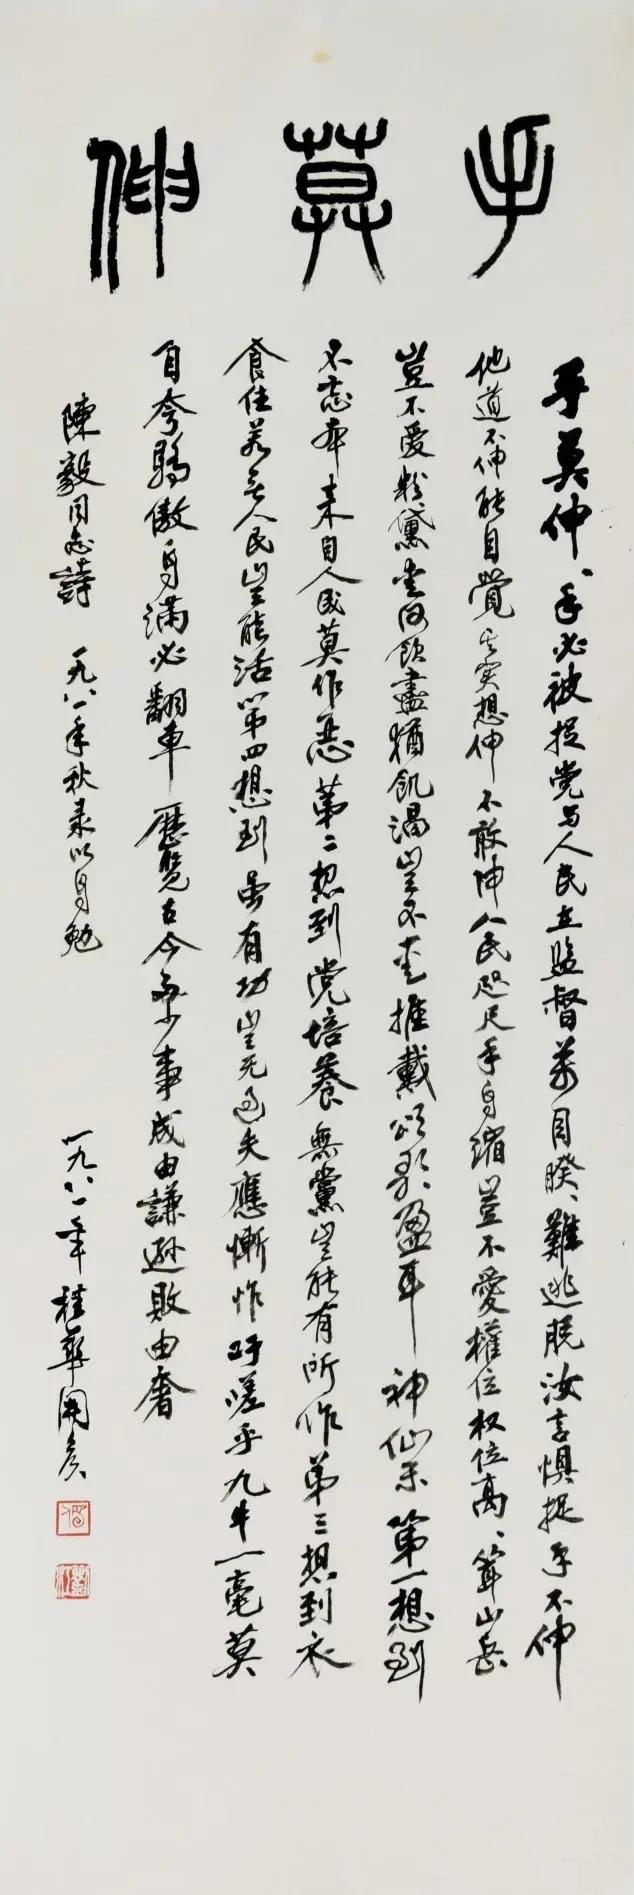 手莫伸
手莫伸、手必被捉党与人民在監督萬目睽、難逃脱汝言懼捉手不伸
他道不伸能自覺其实想伸不敢伸人民咫尺手自缩豈不愛權位权位高、耸山岳
豈不愛粉黛爱河飲盡猶飢渴豈不爱推戴颂歌盈耳神仙乐第一想到
不忘本来自人民莫作恶第二想到党培養無黨豈能有所作第三想到衣
食住若无人民豈能活第四想到虽有功豈无过失應慚怍吁嗟乎九牛一毫莫
自夸驕傲自滿必翻車歷覽古今多少事成由謙遜敗由奢
陳毅同志詩 一九八一年秋录以自勉
一九八一年桂華開矣